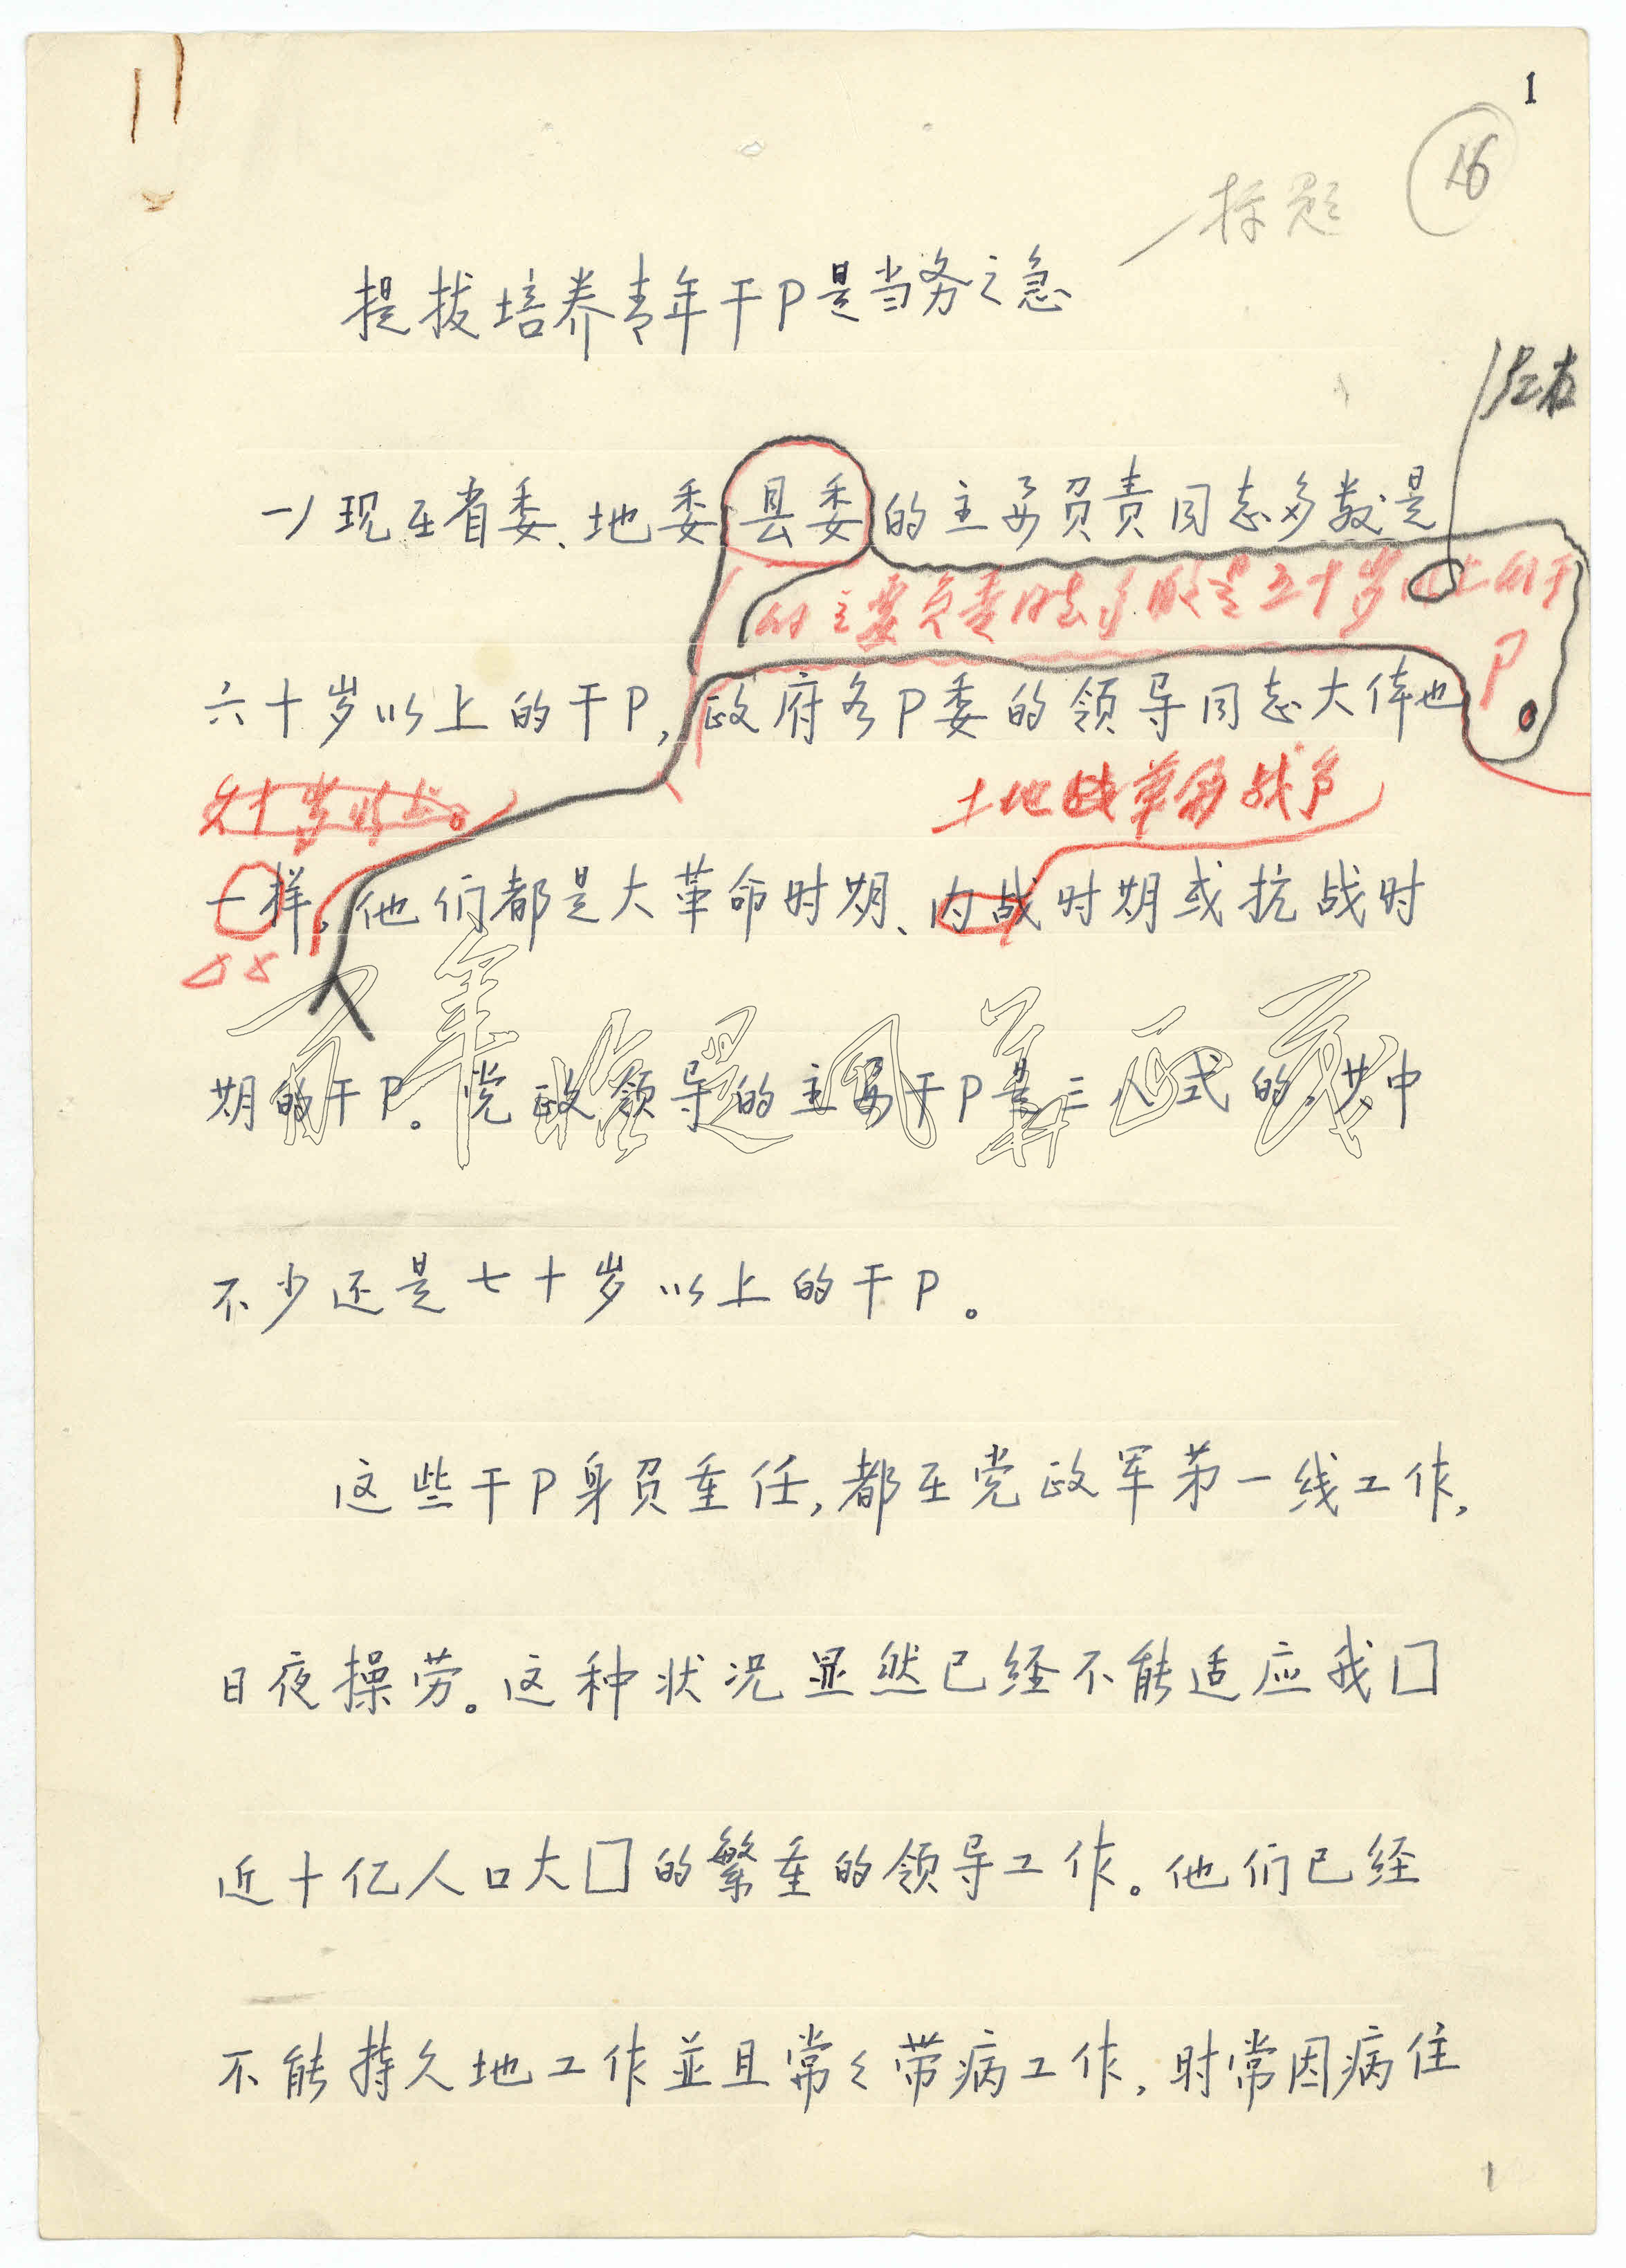 1
16
标题
提拔培养青年干P是当务之急
左右
一、现在省委、地委县委的主要负责同志多数是
的主要负责同志多数是五十岁以上的干
P。
六十岁以上的干P，政府各P委的领导同志大体也
六十岁以上。
土地革命战争
一样。他们都是大革命时期、内战时期或抗战时
期的干P。党政领导的主要干P是三八式的，其中
百年恰是风华正茂
不少还是七十岁以上的干P。
这些干P身负重任，都在党政军第一线工作，
日夜操劳。这种状况显然已经不能适应我囗
近十亿人口大囗的繁重的领导工作。他们已经
不能持久地工作並且常々带病工作，时常因病住
1